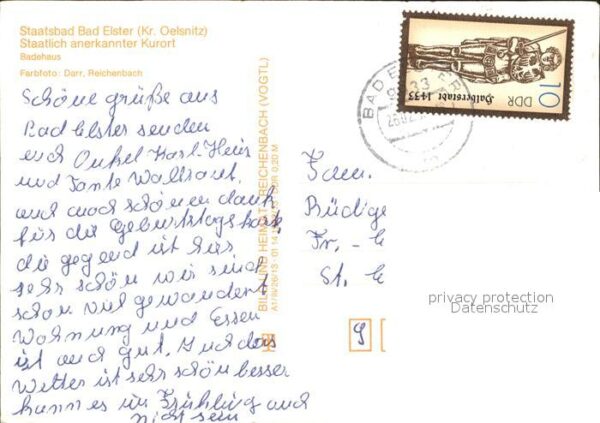 Staatsbad Bad Elster (Kr. Oelsnitz)
Staatlich anerkannter Kurort
Badehaus
Farbfoto: Darr, Reichenbach
Schöne grüße aus
Bad Elster senden
euch Onkel Karl-Heinz
und Tante Waltraut,
und auch schönen dank
für die Geburtstagskart,
die gegend ist hir
sehr schön wir sind
schon viel gewandert
Wohnung und Essen
ist auch gut. Auch das
Wetter ist sehr schön besser
kann es im Frühling auch
nicht sein
BILD UND HEIMAT REICHENBACH (VOGTL)
A1/III/26/13 01 14
0,20 M
BAD ELSTER
Halberstadt 1433
10
DDR
Fam.
Rüdige
Fr. - E
St. E
9
privacy protection
Datenschutz